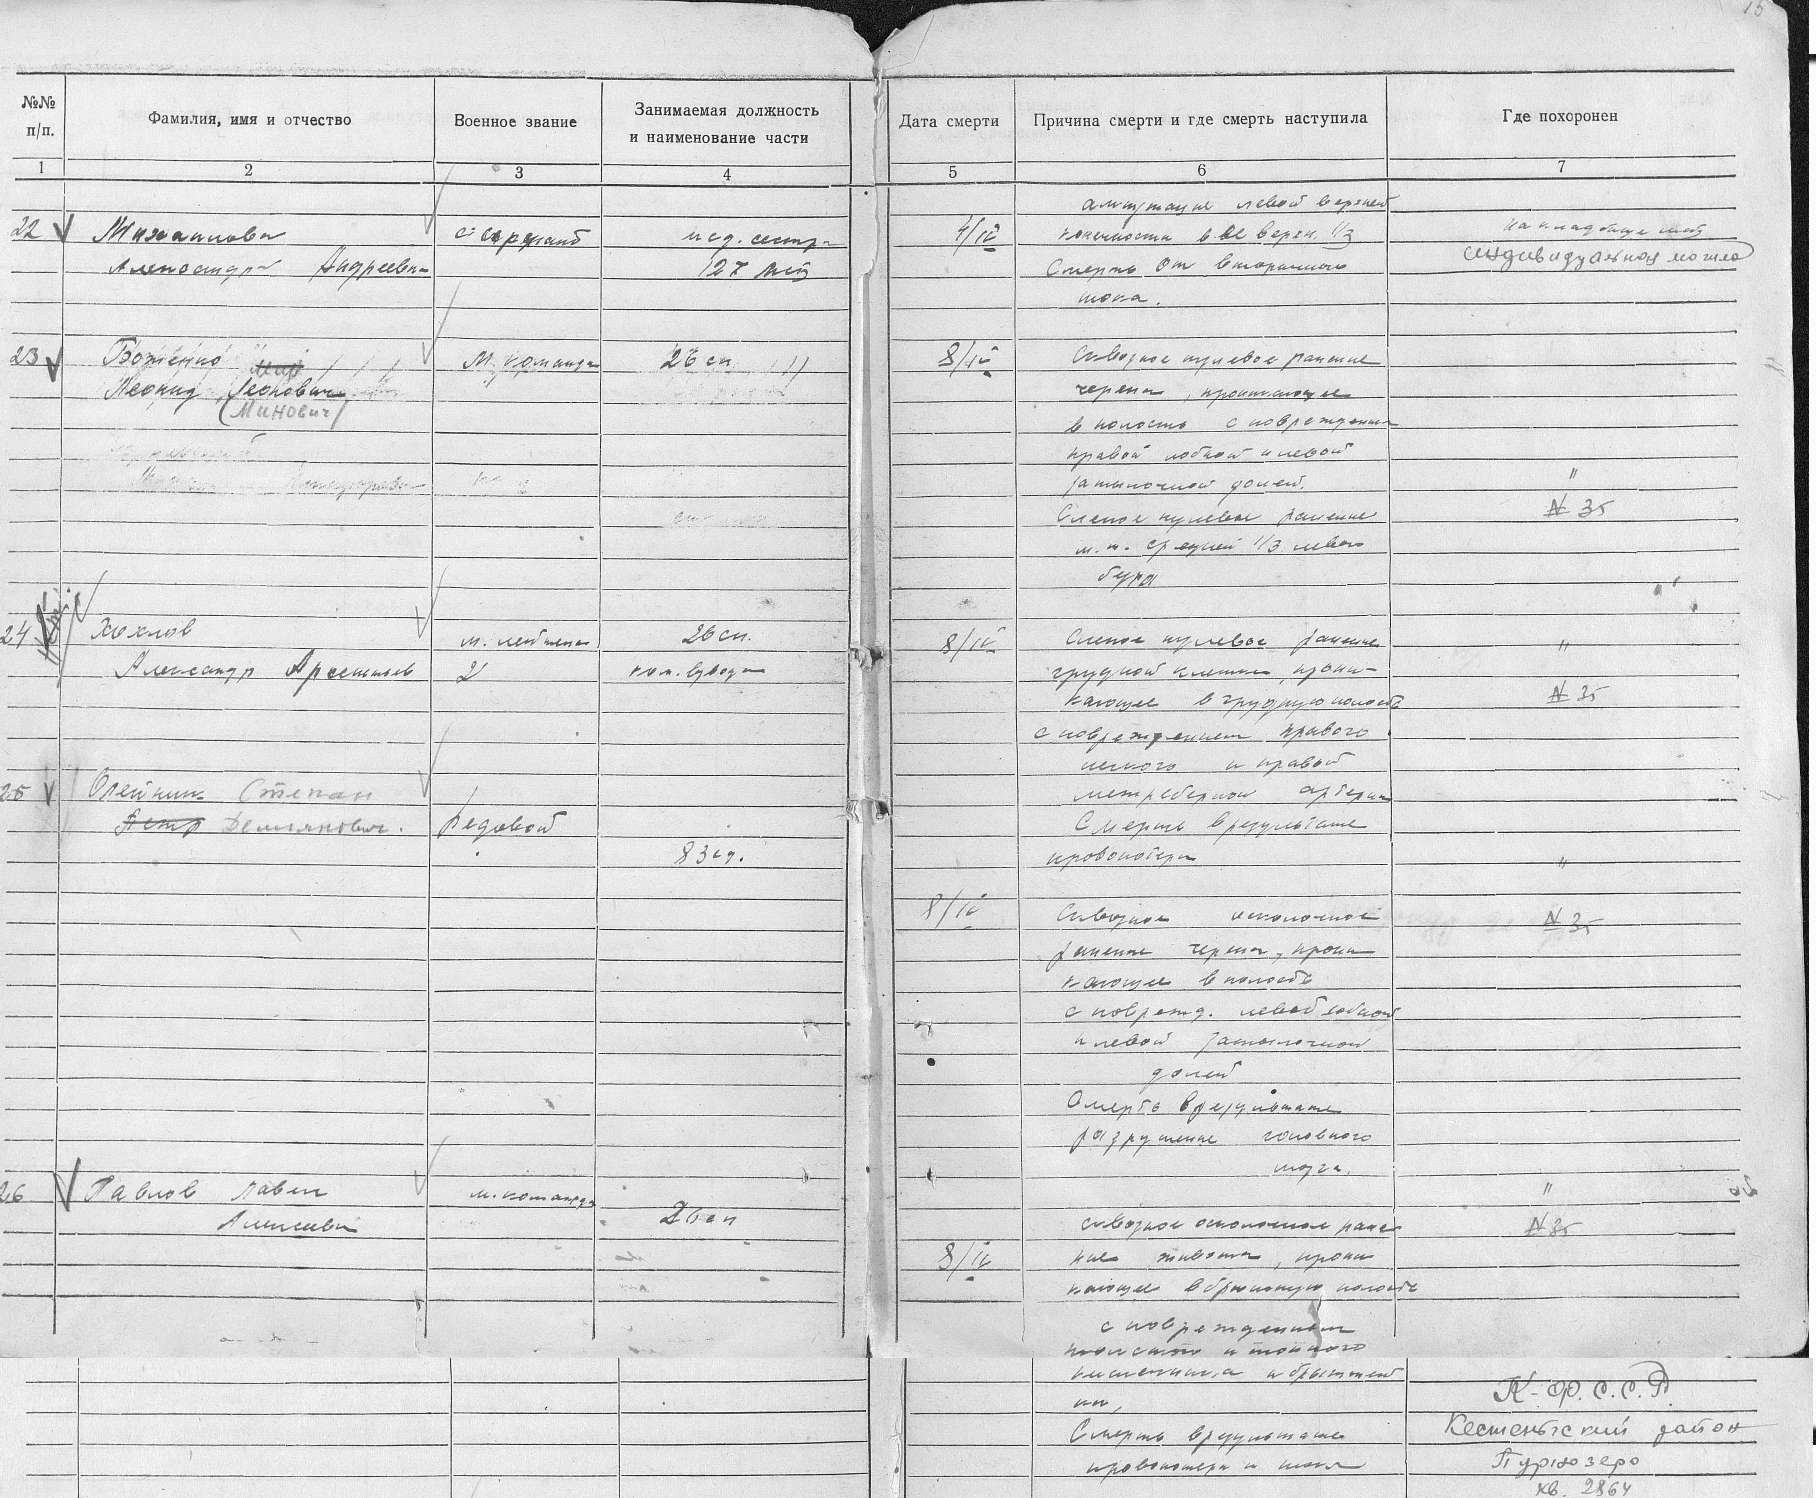 15
№№ п/п.
Фамилия, имя и отчество
Военное звание
Занимаемая должность
и наименование части
Дата смерти
Причина смерти и где смерть наступила
Где похоронен
1 2 3 4 5 6 7
22 Михайлова
Александра Андреевна
с. сержант
мед. сестра
127
4/IV
ампутация левой верхней
конечности в верхн. 1/3
Смерть от вторичного
шока.
на кладбище
индивидуальная могила
23 Боженко
Леонид Леонович
(Минович)
м. команд
26 сп
8/IV
Сквозное пулевое ранение
черепа, проникающее
в полость с повреждением
правой лобной и левой
затылочной долей.
Слепое пулевое ранение
м.т. средней 1/3 левого
бедра
"
N 35
24 Хохлов
Александр Арсентьев
м. лейтенант
26 сп.
ком. взвода
8/IV
Слепое пулевое ранение
грудной клетки, прони-
кающее в грудную полость
с повреждением правого
легкого и правой
межреберной артерии
Смерть в результате
кровопотери
"
N 35
25 Олейник Степан
Петр Демьянович.
Рядовой
83 сд.
8/IV
Сквозное осколочное
ранение черепа, прони
кающее в полость
с поврежд. левой лобной
и левой затылочной
долей
Смерть в результате
разрушение головного
мозга.
"
N 35
26 Павлов Павел
Алексеевич
м. командир
26 сп
8/IV
сквозное осколочное ране
ние живота, прони
кающее в брюшную полость
с повреждением
толстого и тонкого
кишечника и брыжей
ки,
Смерть в результате
кровопотери и шока
"
N 35
К-Ф. С. С. Р.
Кестеньгский район
Пурнозеро
кв. 2864